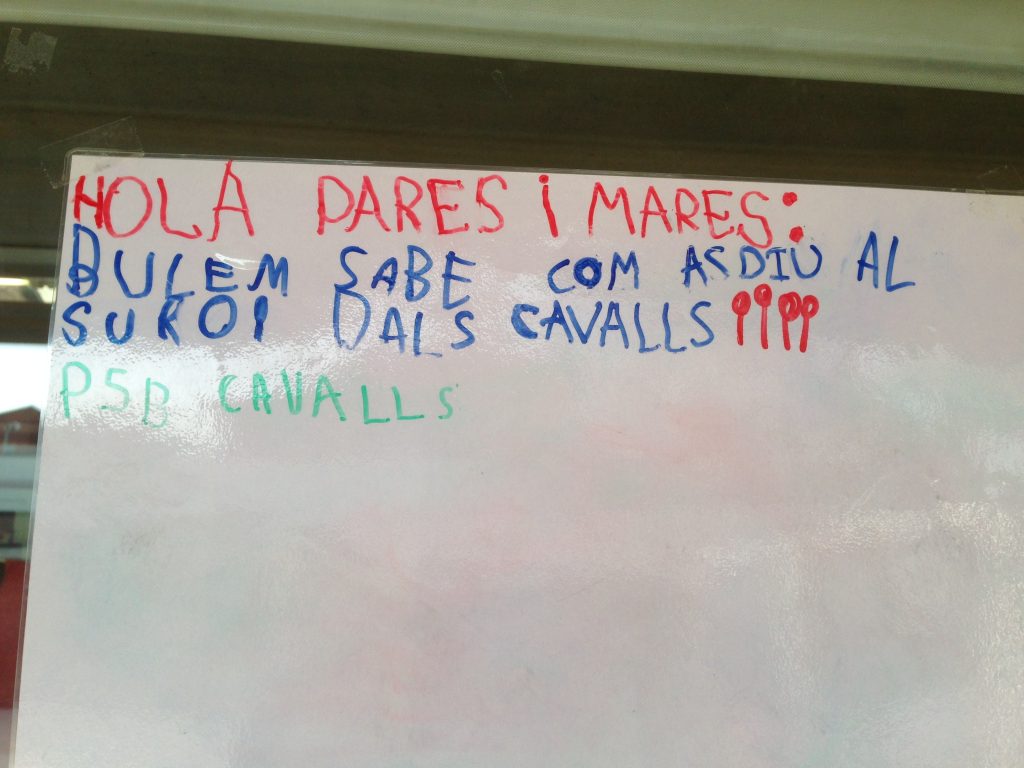 HOLA PARES i MARES:
BULEM SABE COM ASDIU AL
SUROI DALS CAVALLS
PSB CAVALLS